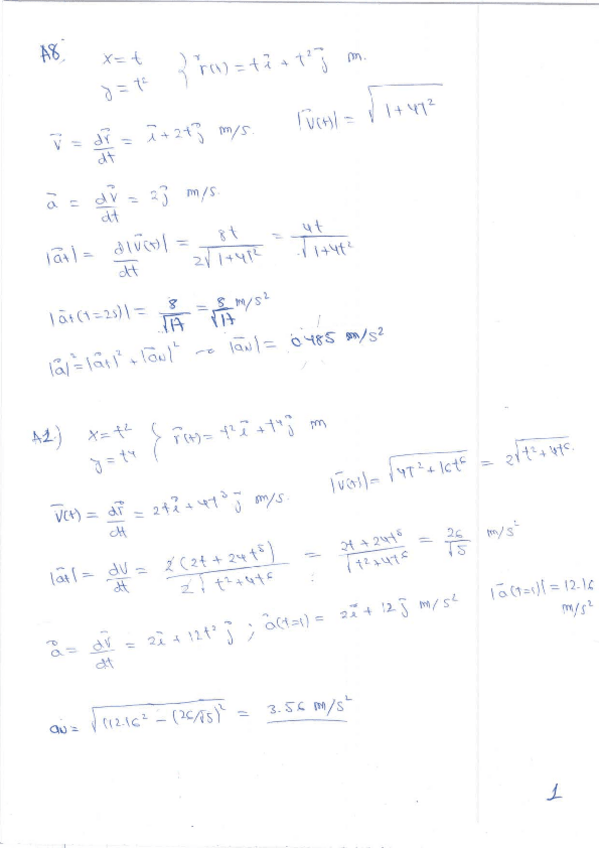 A8.
x = t
y = t² } r⃗(t) = t i⃗ + t² j⃗ m.
v⃗ = dr⃗/dt = i⃗ + 2t j⃗ m/s. |v⃗(t)| = √(1+4t²)
a⃗ = dv⃗/dt = 2 j⃗ m/s.
|a⃗t| = d|v⃗(t)|/dt = 8t/(2√(1+4t²)) = 4t/√(1+4t²)
|a⃗t(t=2s)| = 8/√17 = 8/√17 m/s²
|a⃗|² = |a⃗t|² + |a⃗N|² → |a⃗N| = 0'485 m/s²
A1.)
x = t²
y = t⁴ } r⃗(t) = t² i⃗ + t⁴ j⃗ m
v⃗(t) = dr⃗/dt = 2t i⃗ + 4t³ j⃗ m/s. |v⃗(t)| = √(4t²+16t⁶) = 2√(t²+4t⁶).
|a⃗t| = dv/dt = 2(2t+24t⁵)/(2√(t²+4t⁶)) = (2t+24t⁵)/√(t²+4t⁶) = 26/√5 m/s²
a⃗ = dv⃗/dt = 2i⃗ + 12t² j⃗ ; a⃗(t=1) = 2i⃗ + 12j⃗ m/s² |a⃗(t=1)| = 12.16 m/s²
aN = √(12.16² − (26/√5)²) = 3.56 m/s²
1